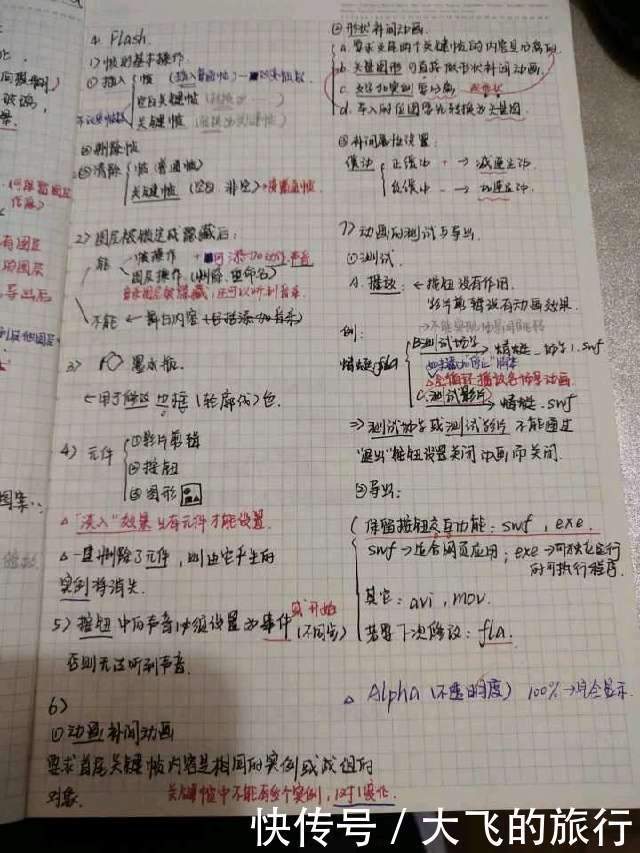 4. Flash
1) 帧的基本操作
① 插入 帧 (插入普通帧)
空白关键帧
关键帧
② 删除帧
③ 清除 帧 (普通帧)
关键帧 (空白 非空)
2) 图层被锁定或隐藏后:
能 帧操作
图层操作 (删除、重命名)
音乐图层被隐藏, 还可以听到音乐
不能 ← 舞台内容
3) 墨水瓶
← 用于修改 边框 (轮廓线) 色.
4) 元件 ①影片剪辑
②按钮
③图形
△ "淡入"效果 只有元件才能设置.
△ 一旦删除了元件, 则由它产生的
实例将消失.
5) 按钮 中的声音必须设置为事件 或 开始
(不同步)
否则无法听到声音.
6)
①动画补间动画
要求首尾关键帧内容是相同的实例或成组的
对象. 关键帧中不能有多个实例, 1对1变化.
②形状补间动画.
a. 要求首尾两个关键帧的内容是分离的.
b. 矢量图形可直接做形状补间动画.
c. 文字和实例要分离.
d. 导入的位图要先转换为矢量图.
③补间属性设置:
缓动 正缓动 + → 减速运动.
负缓动 - → 加速运动.
7) 动画的测试与导出.
①测试.
A. 播放: ← 按钮没有作用.
影片剪辑没有动画效果.
例: B.测试场景 → 蜻蜓_场景1.swf
蜻蜓.fla
△会循环播放各场景动画.
C.测试影片 → 蜻蜓.swf
⇒ 测试场景或测试影片 不能通过
"退出"按钮设置关闭动画而关闭.
②导出:
保留按钮交互功能: swf, exe.
swf → 适合网页应用; exe → 可独立运行
的可执行程序.
其它: avi, mov.
若要下次修改: fla.
△ Alpha (不透明度) 100% → 完全显示.
快传号 / 大飞的旅行